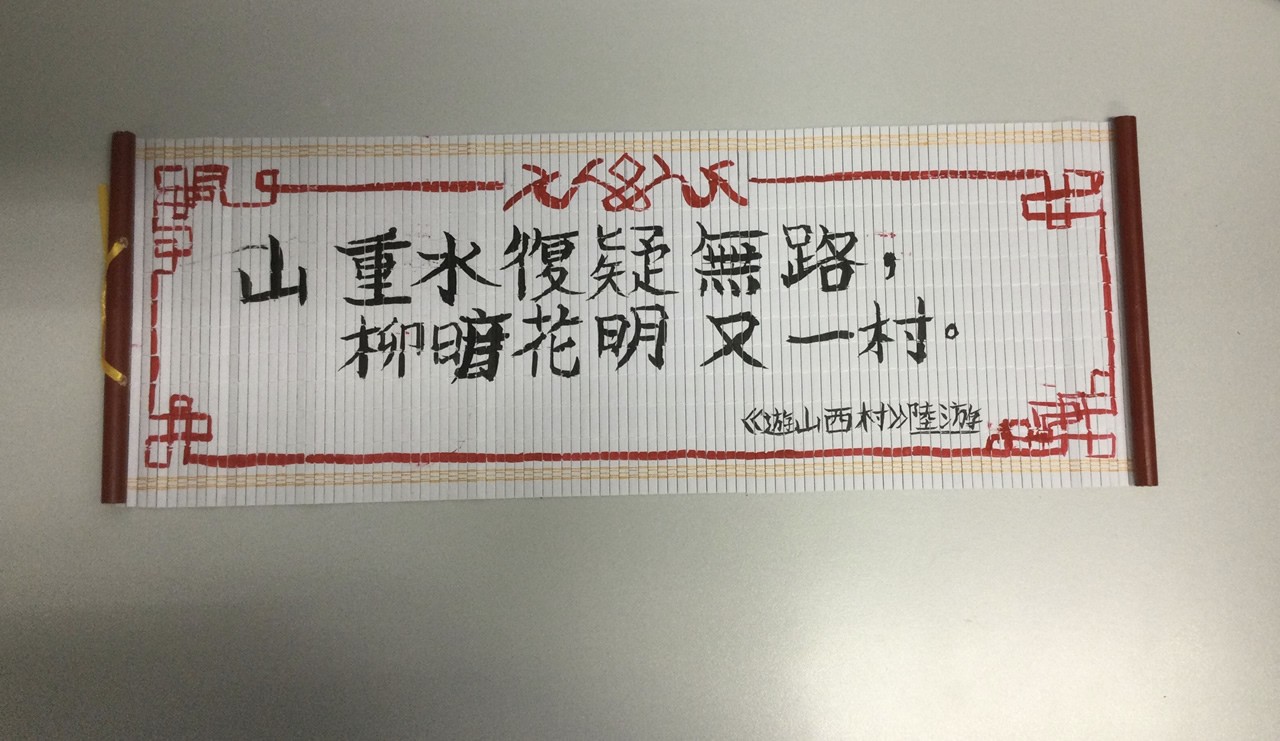 山重水復疑無路，
柳暗花明又一村。
《遊山西村》陸游